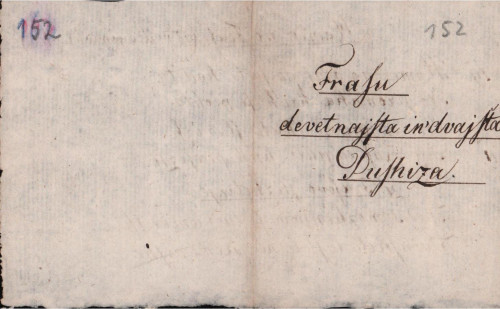 152
152
Fraſu
devetnajſta in' dvajſta
Duſhiza.